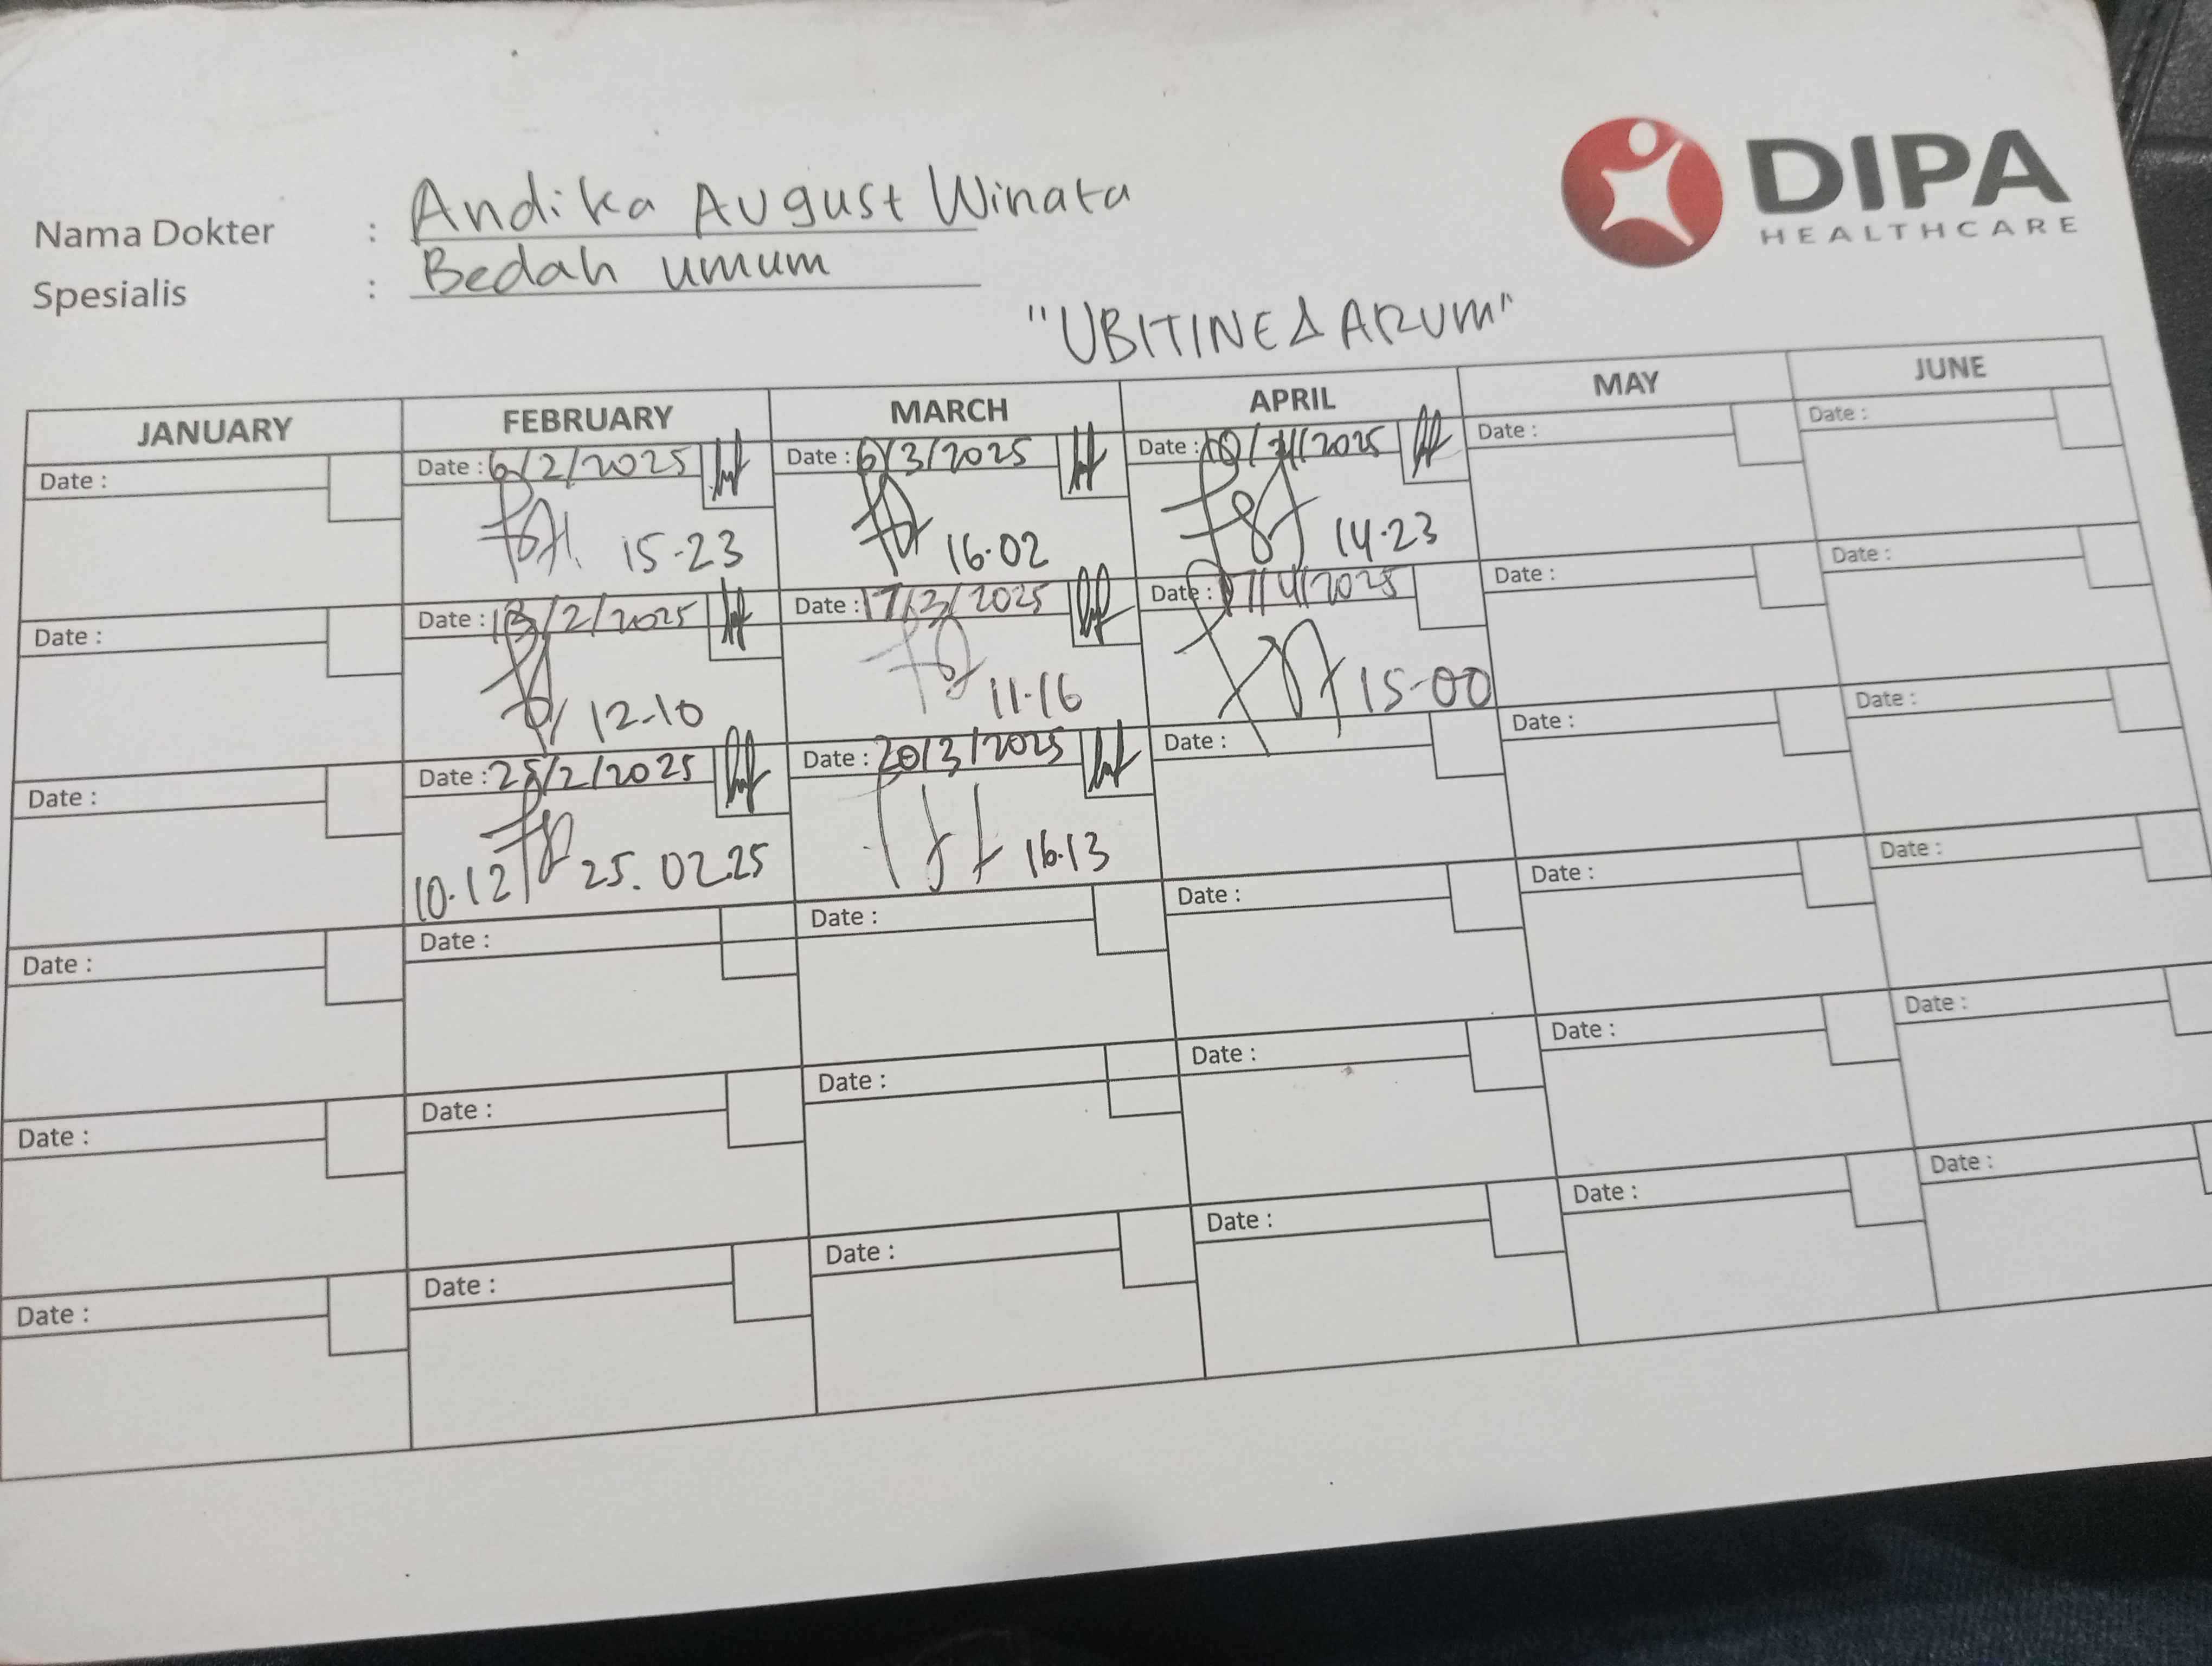 DIPA
HEALTHCARE
Nama Dokter : Andika August Winata
Spesialis : Bedah umum
"UBITINE & ARUM"
JANUARY FEBRUARY MARCH APRIL MAY JUNE
Date : Date : 6/2/2025 Date : 6/3/2025 Date : 10/4/2025 Date : Date :
15-23 16.02 14.23
Date : Date : 13/2/2025 Date : 17/3/2025 Date : 17/4/2025 Date : Date :
12-10 11-16 15-00
Date : Date : 25/2/2025 Date : 20/3/2025 Date : Date : Date :
10.12 25.02.25 16.13
Date : Date : Date : Date : Date : Date :
Date : Date : Date : Date : Date : Date :
Date : Date : Date : Date : Date : Date :